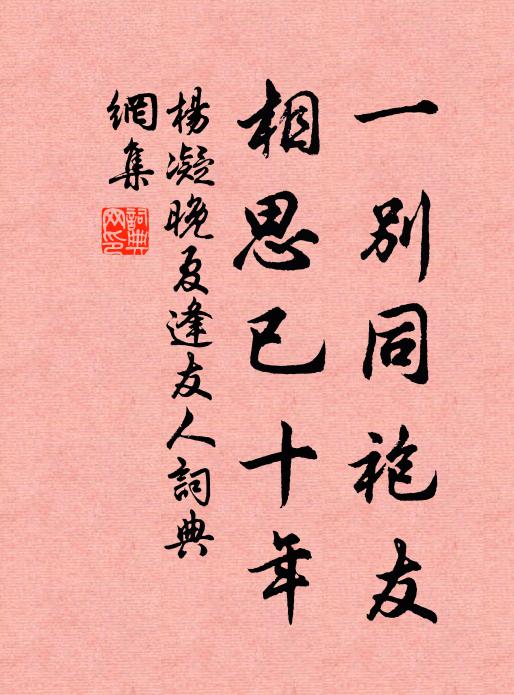 一別同袍友
相思已十年
楊凝晚夏逢友人詞典
網集
詞典
网印